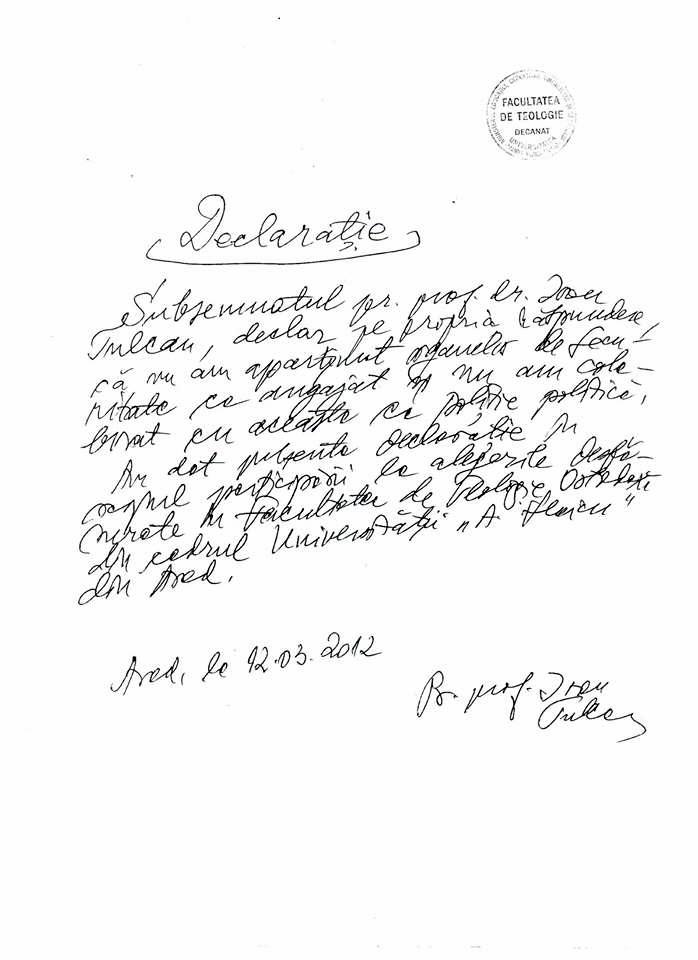 FACULTATEA
DE TEOLOGIE
DECANAT
UNIVERSITATEA
Declarație
Subsemnatul pr. prof. dr. Ioan
Tulcan, declar pe propria răspundere,
că nu am aparținut organelor de secu-
ritate ca angajat și nu am cola-
borat cu aceasta ca poliție politică.
Am dat prezenta declarație în
vederea participării la alegerile desfă-
șurate în Facultatea de Teologie Ortodoxă
din cadrul Universității „A. Vlaicu”
din Arad.
Arad, la 12.03.2012
Pr. prof. Ioan
Tulcan